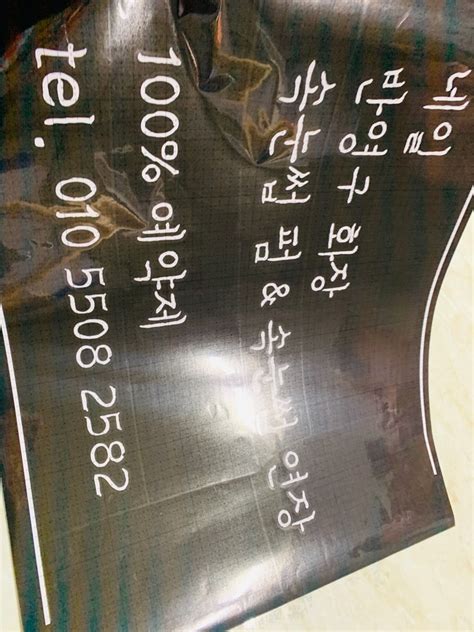 네일
반영구 화장
속눈썹 펌 & 속눈썹 연장
100% 예약제
tel. 010 5508 2582